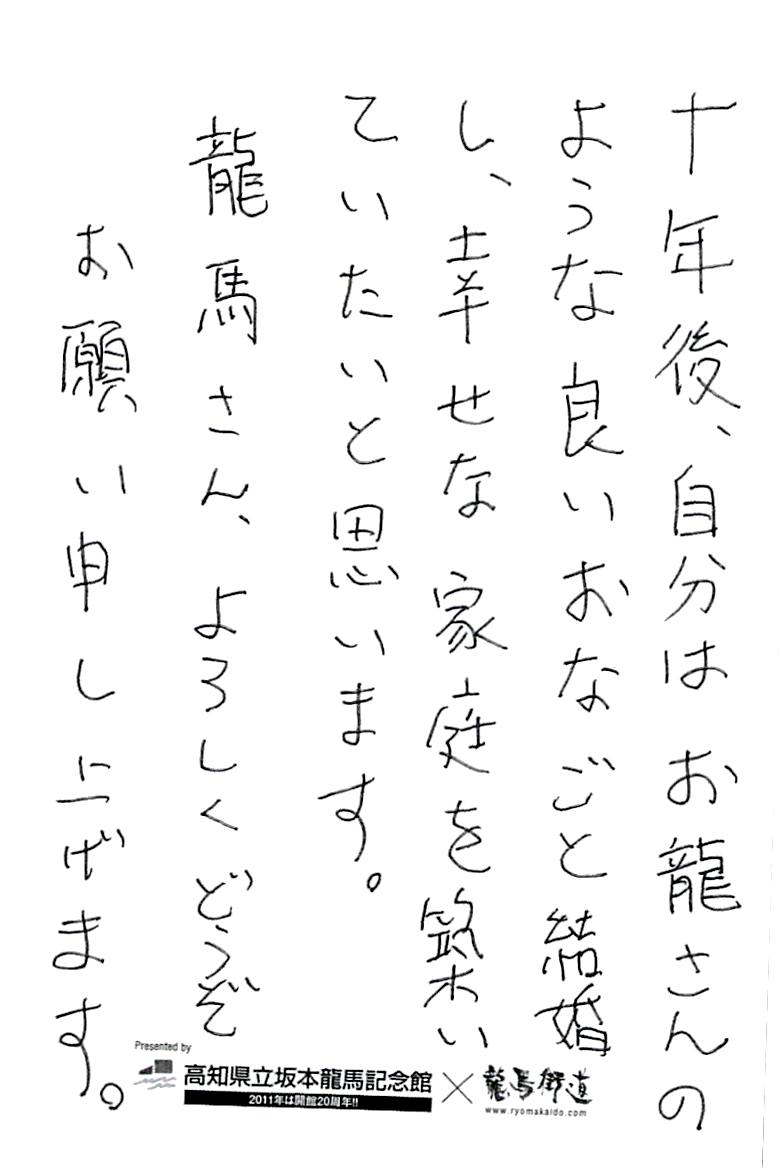 十年後、自分はお龍さんの
ような良いおなごと結婚
し、幸せな家庭を築い
ていたいと思います。
龍馬さん、よろしくどうぞ
お願い申し上げます。
Presented by
高知県立坂本龍馬記念館
2011年は開館20周年!!
×
龍馬街道
www.ryomakaido.com